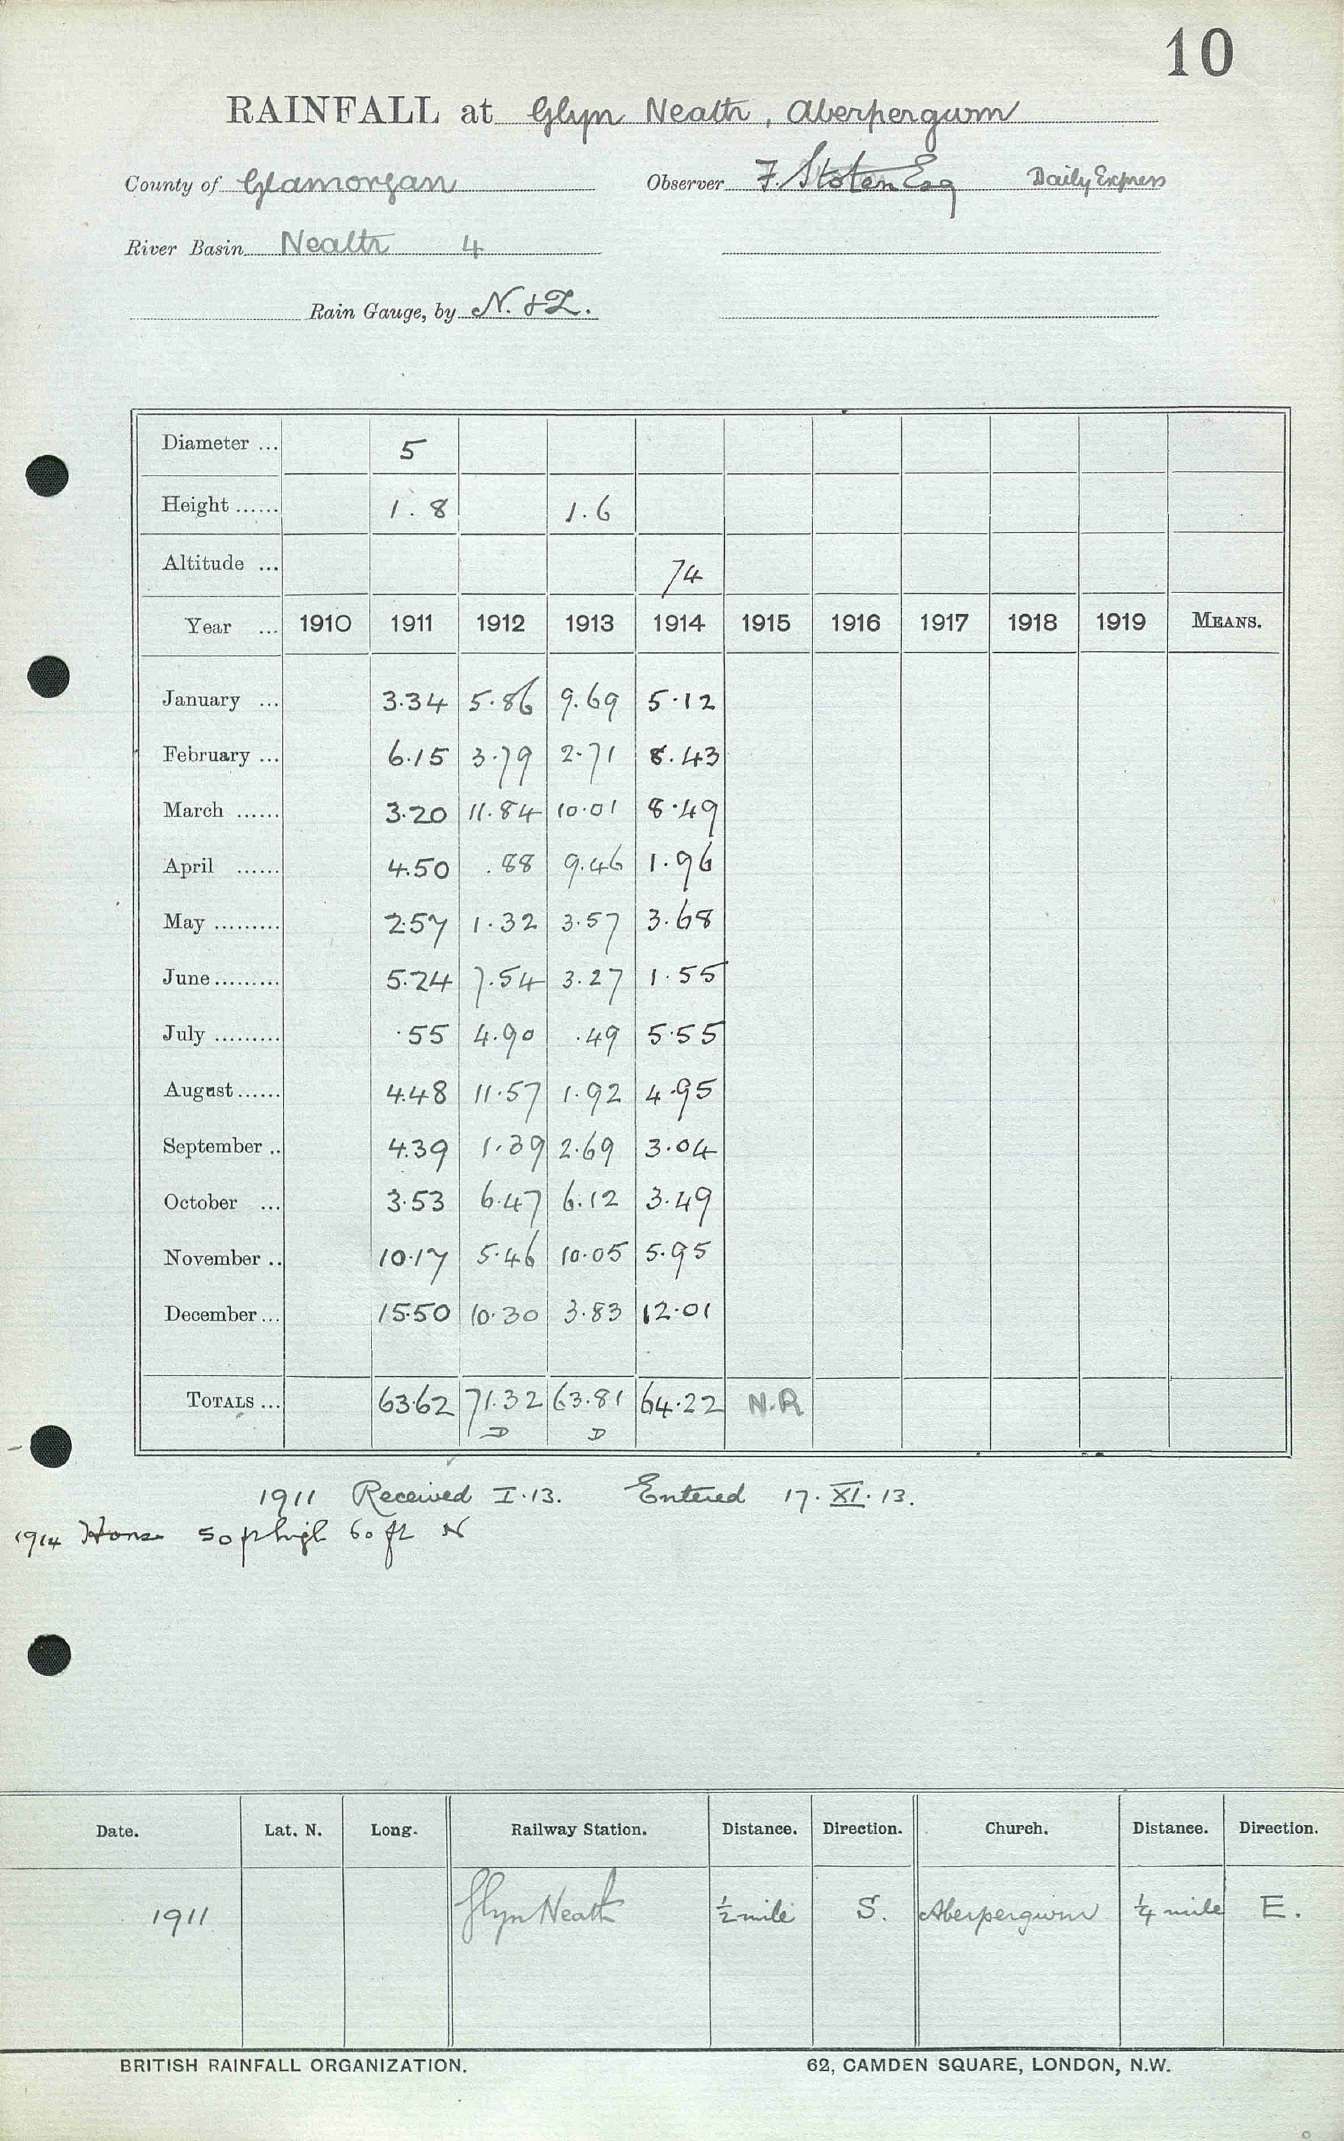 10
RAINFALL at Glyn Neath, Aberpergwm
County of Glamorgan Observer F. Stoten Esq Daily Express
River Basin Neath 4
Rain Gauge, by N. & Z.
Diameter ... 5
Height ...... 1.8 1.6
Altitude ... 74
Year ... 1910 1911 1912 1913 1914 1915 1916 1917 1918 1919 MEANS.
January ... 3.34 5.86 9.69 5.12
February ... 6.15 3.79 2.71 8.43
March ...... 3.20 11.84 10.01 8.49
April ...... 4.50 .88 9.46 1.96
May ......... 2.57 1.32 3.57 3.68
June ......... 5.24 7.54 3.27 1.55
July ......... .55 4.90 .49 5.55
August ...... 4.48 11.57 1.92 4.95
September .. 4.39 1.39 2.69 3.04
October ... 3.53 6.47 6.12 3.49
November .. 10.17 5.46 10.05 5.95
December ... 15.50 10.30 3.83 12.01
TOTALS ... 63.62 71.32 63.81 64.22 N.R
D D
1911 Received I.13. Entered 17.XI.13.
1914 House 50 ft high 60 ft N
Date. Lat. N. Long. Railway Station. Distance. Direction. Church. Distance. Direction.
1911 Glyn Neath ½ mile S. Aberpergwm ¼ mile E.
BRITISH RAINFALL ORGANIZATION. 62, CAMDEN SQUARE, LONDON, N.W.